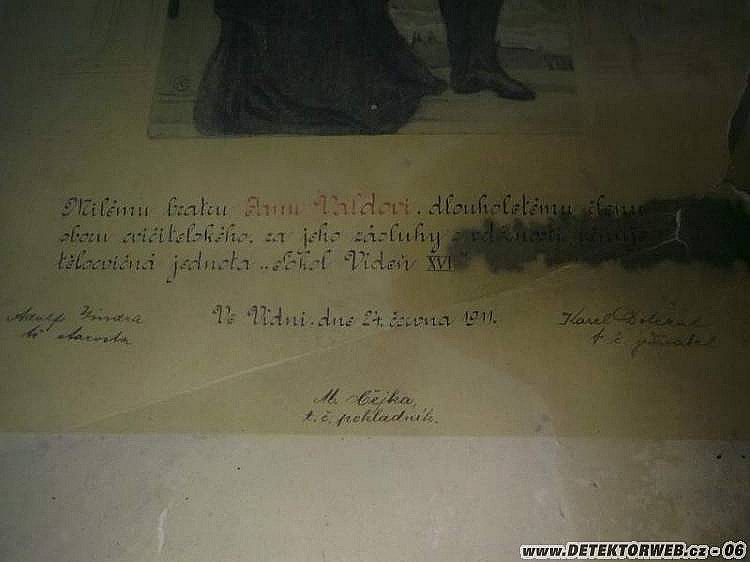 Milému bratru Janu Valdovi, dlouholetému členu
sboru cvičitelského, za jeho zásluhy s vděčností věnuje
tělocvičná jednota „Sokol Vídeň XVI"
Ve Vídni, dne 24. června 1911.
Adolf
t. č. starosta
Karel
t. č. jednatel
M. Čejka,
t. č. pokladník.
www.DETEKTORWEB.cz - 06